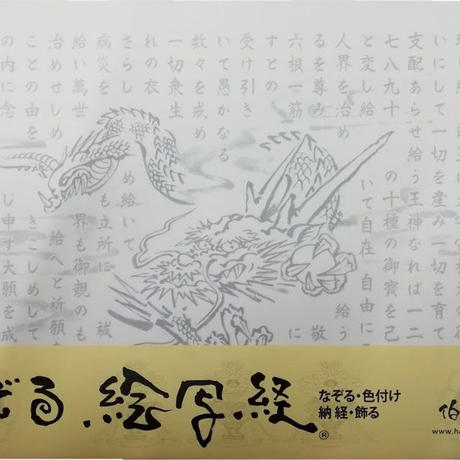 いにして一切を産み一切を育て
支配あらせ給う王神なれば一二
七八九十 の十種の御寶を己
と変し給 いて自在自由に
人界を治め 給う
るを尊み 敬
六根一筋 に
すとの
受け引き
いて愚かなる
数々を戒め
一切衆生
れの衣
さらし め給いて
病災を も立所に 祓
給い萬世 界も御親のも
治めせしめ 給へと祈願
ことの由を きこしめして
の内に念 し申す大願を成
ぞる 絵写経®
なぞる・色付け
納経・飾る
伯
www.ha